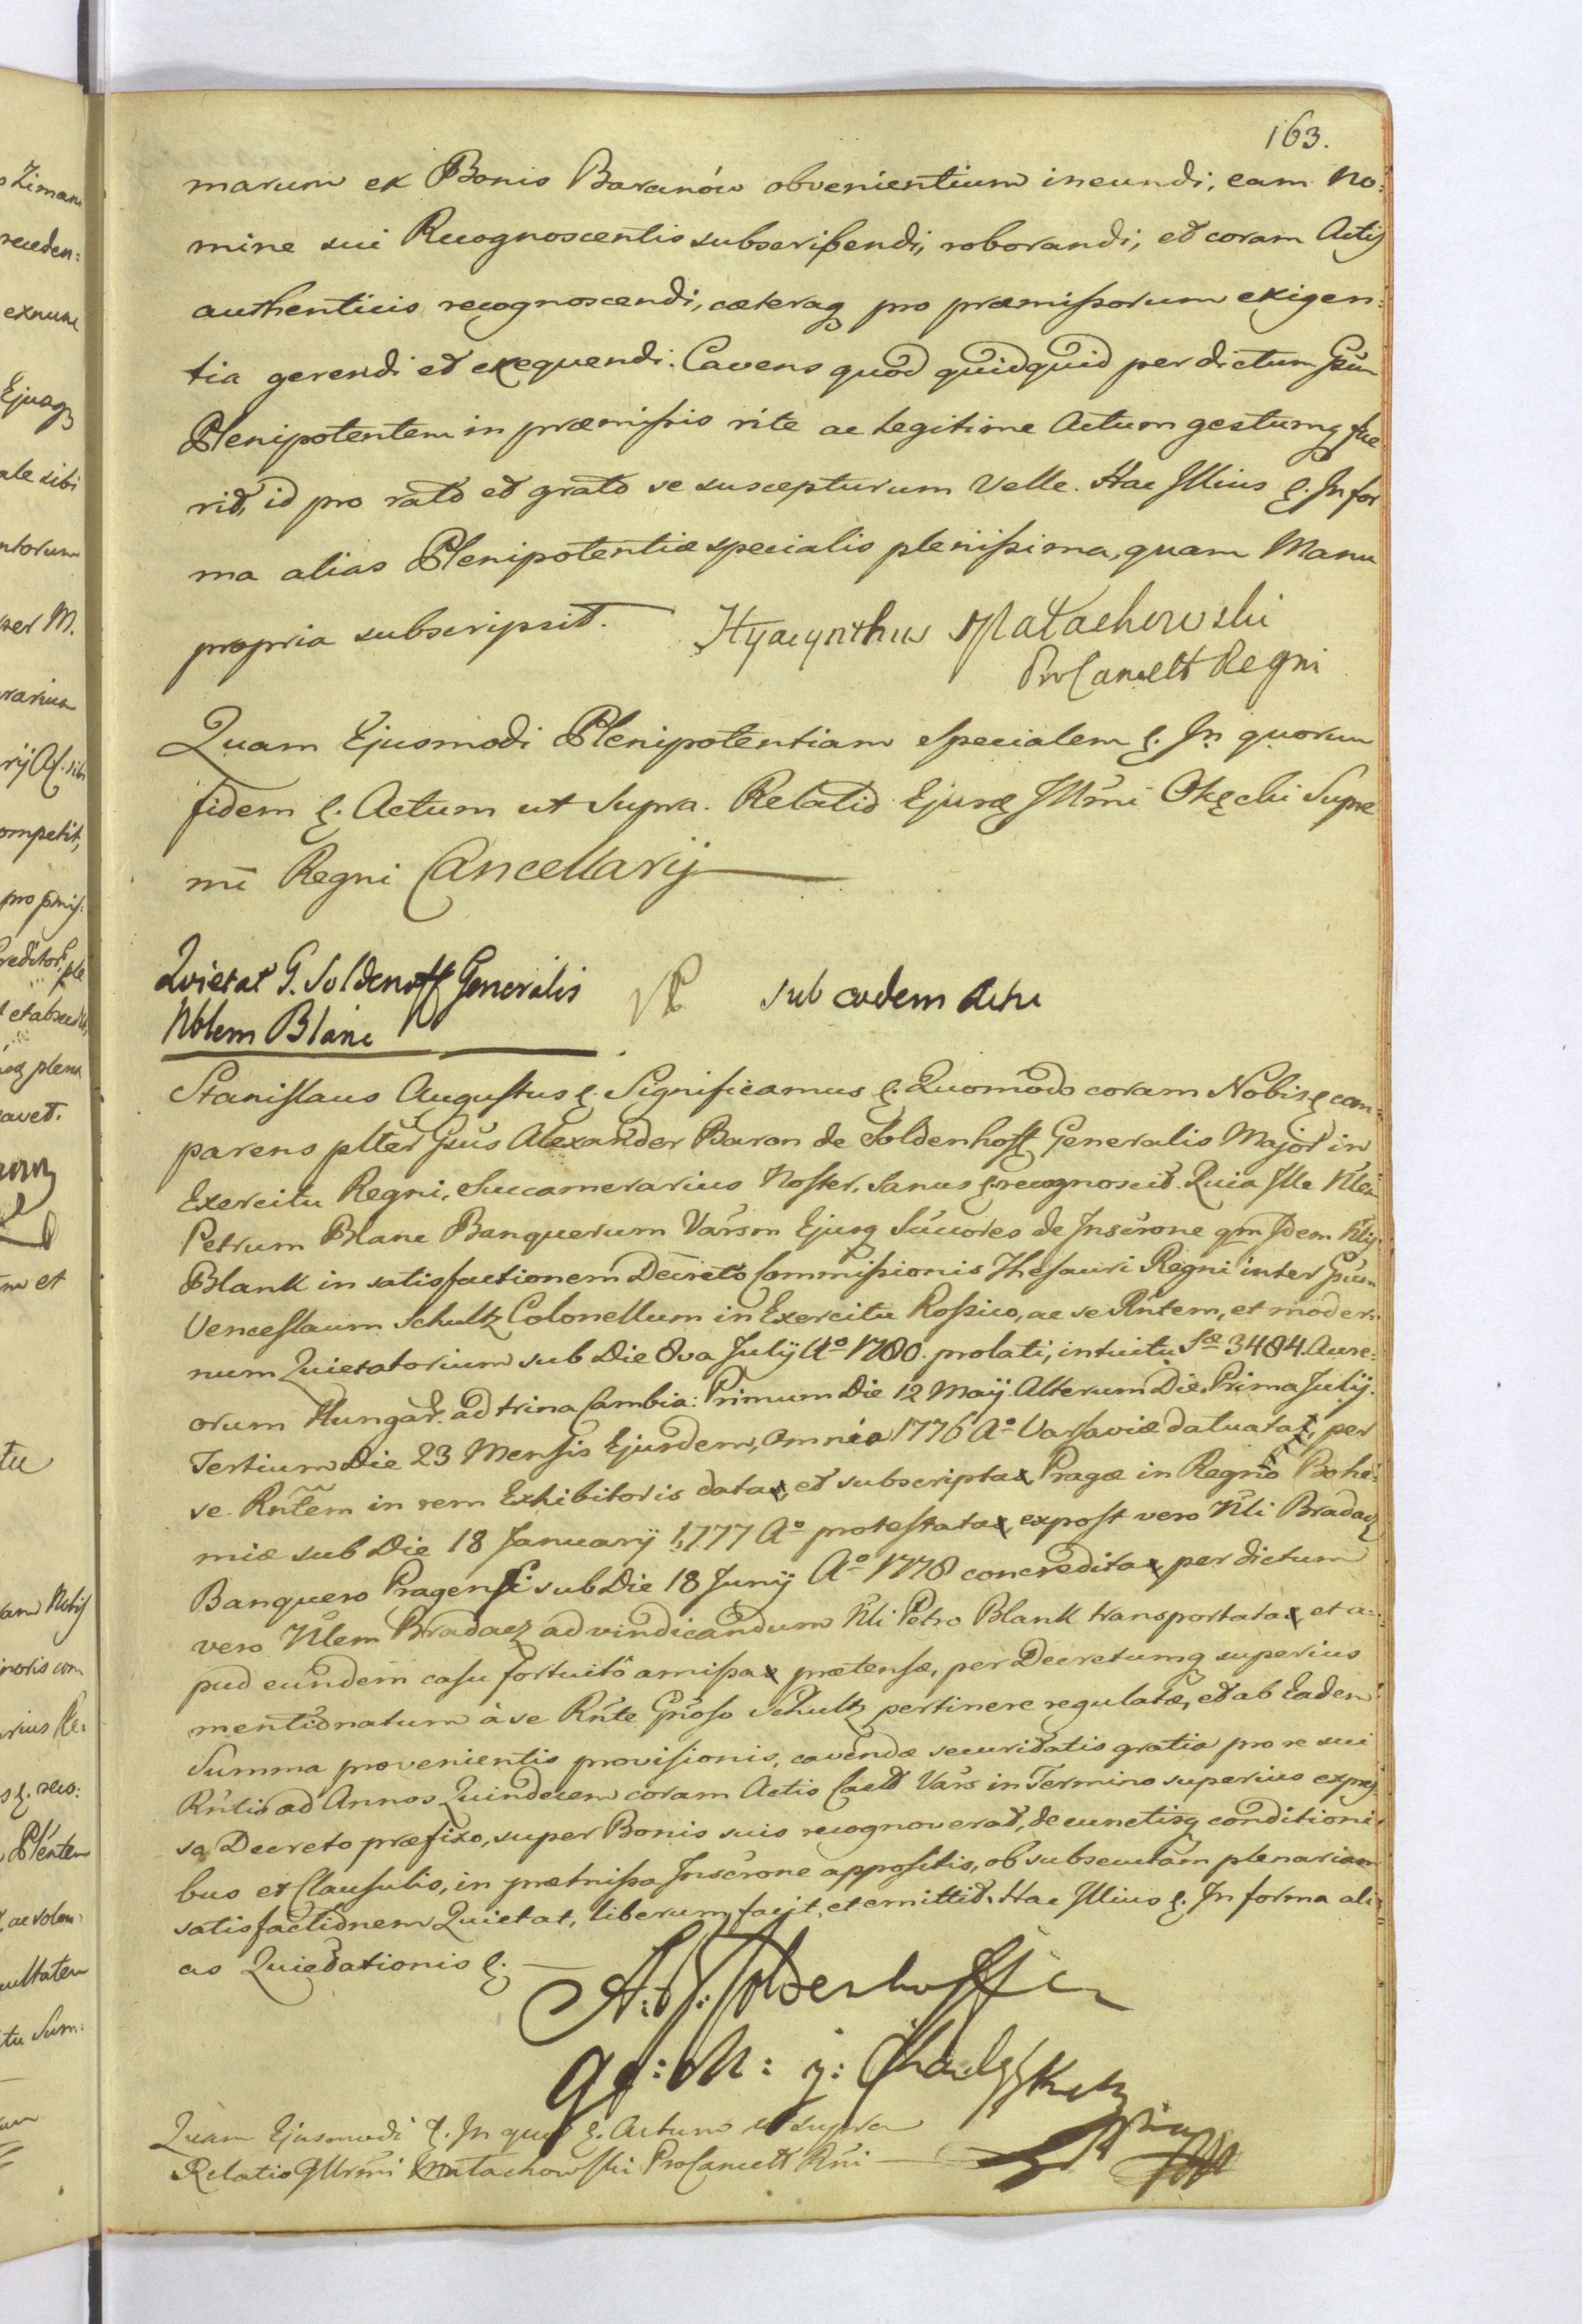 163.
marum ex Bonis Baranów obvenientium ineundi, eam No:
mine sui Recognoscentis subscribendi, roborandi, et coram Actis
authenticis recognoscendi, cæteraq pro præmissorum exigen:
tia gerendi et exequendi. Cavens quod quidquid per dictum Gsum
Plenipotentem in præmissis rite ac legitime Actum gestumq fue
rit, id pro rato et grato se suscepturum velle. Hac Illius &. In for
ma alias Plenipotentiæ specialis plenissima, quam Manu
propria subscripsit. Hyacynthus Małachowski
ProCancell Regni
Quam Ejusmodi Plenipotentiam specialem &. In quorum
fidem &. Actum ut supra. Relatio Ejusd Illmi Okęcki Supre
mi Regni Cancellarij
Quietat G. Soldenoff Generalis
Nblem Blanc
sub eodem Actu
Stanislaus Augustus &. Significamus &. Quomodo coram Nobis & com
parens plter Gsus Alexander Baron de Soldenhoff Generalis Major in
Exercitu Regni, Succamerarius Noster, Sanus & recognoscit. Quia Ille Nlem
Petrum Blanc Banquerum Varsm Ejusq Succores de Inscrone qm Idem Nlis
Blank in satisfactionem Decreto Commissionis Thesauri Regni inter Gsum
Venceslaum Schultz Colonellum in Exercitu Rossico, ac se Rntem, et moder:
num Quietatorium sub Die 8va Julij Ao 1780. prolati, intuitu Sæ 3484. Aure:
orum Hungar. ad trina Cambia: Primum Die 12 Maij. Alterum Die Prima Julij.
Tertium Die 23 Mensis Ejusdem, omnia 1776 Ao Varsaviæ datuata, per
se Rntem in rem Exhibitoris data, et subscripta Pragæ in Regno Bohe:
miæ sub Die 18 Januarij 1777 Ao protestata, expost vero Nli Bradacz
Banquero Pragensi sub Die 18 Junij Ao 1778 concredita per dictum
vero Nlem Bradacz ad vindicandum Nli Petro Blank transportata, et a:
pud eundem casu fortuito amissa prætensæ, per Decretumq superius
mentionatum à se Rnte Gnoso Schultz pertinere regulatæ, et ab Eadem
Summa provenientis provisionis, cavendæ securitatis gratia pro re sui
Rntis ad Annos Quindecem coram Actis Castr Vars in Termino superius expres
so Decreto præfixo, super Bonis suis recognoverat, de cunctisq conditioni
bus et Clausulis, in præmissa Inscrone appositis, ob subsecutam plenariam
satisfactionem Quietat, liberum facit, et emittit. Hac Illius &. In forma ali
as Quietationis &.
A: B: Soldenhoff
Quam Ejusmodi &. In quor &. Actum ut supra
Relatio Illrmi Małachowski ProCancell Rni